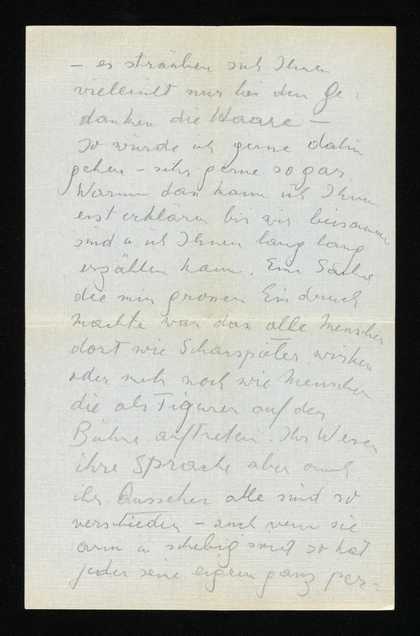 – es sträuben sich Ihnen
vielleicht nur bei den Ge-
danken die Haare –
So würde ich gerne dahin
gehen – sehr gerne sogar.
Warum das kann ich Ihnen
erst erklären bis wir beisammen
sind u ich Ihnen lang lang
erzählen kann. Eine Sache
die mir grossen Eindruck
machte war das alle Menschen
dort wie Schauspieler wirken
oder mehr noch wie Menschen
die als Figuren auf der
Bühne auftreten. Ihr Wesen
ihre Sprache aber auch
ihr Aussehen alle sind so
verschieden – auch wenn sie
arm u schebig sind so hat
jeder seine eigene ganz per-